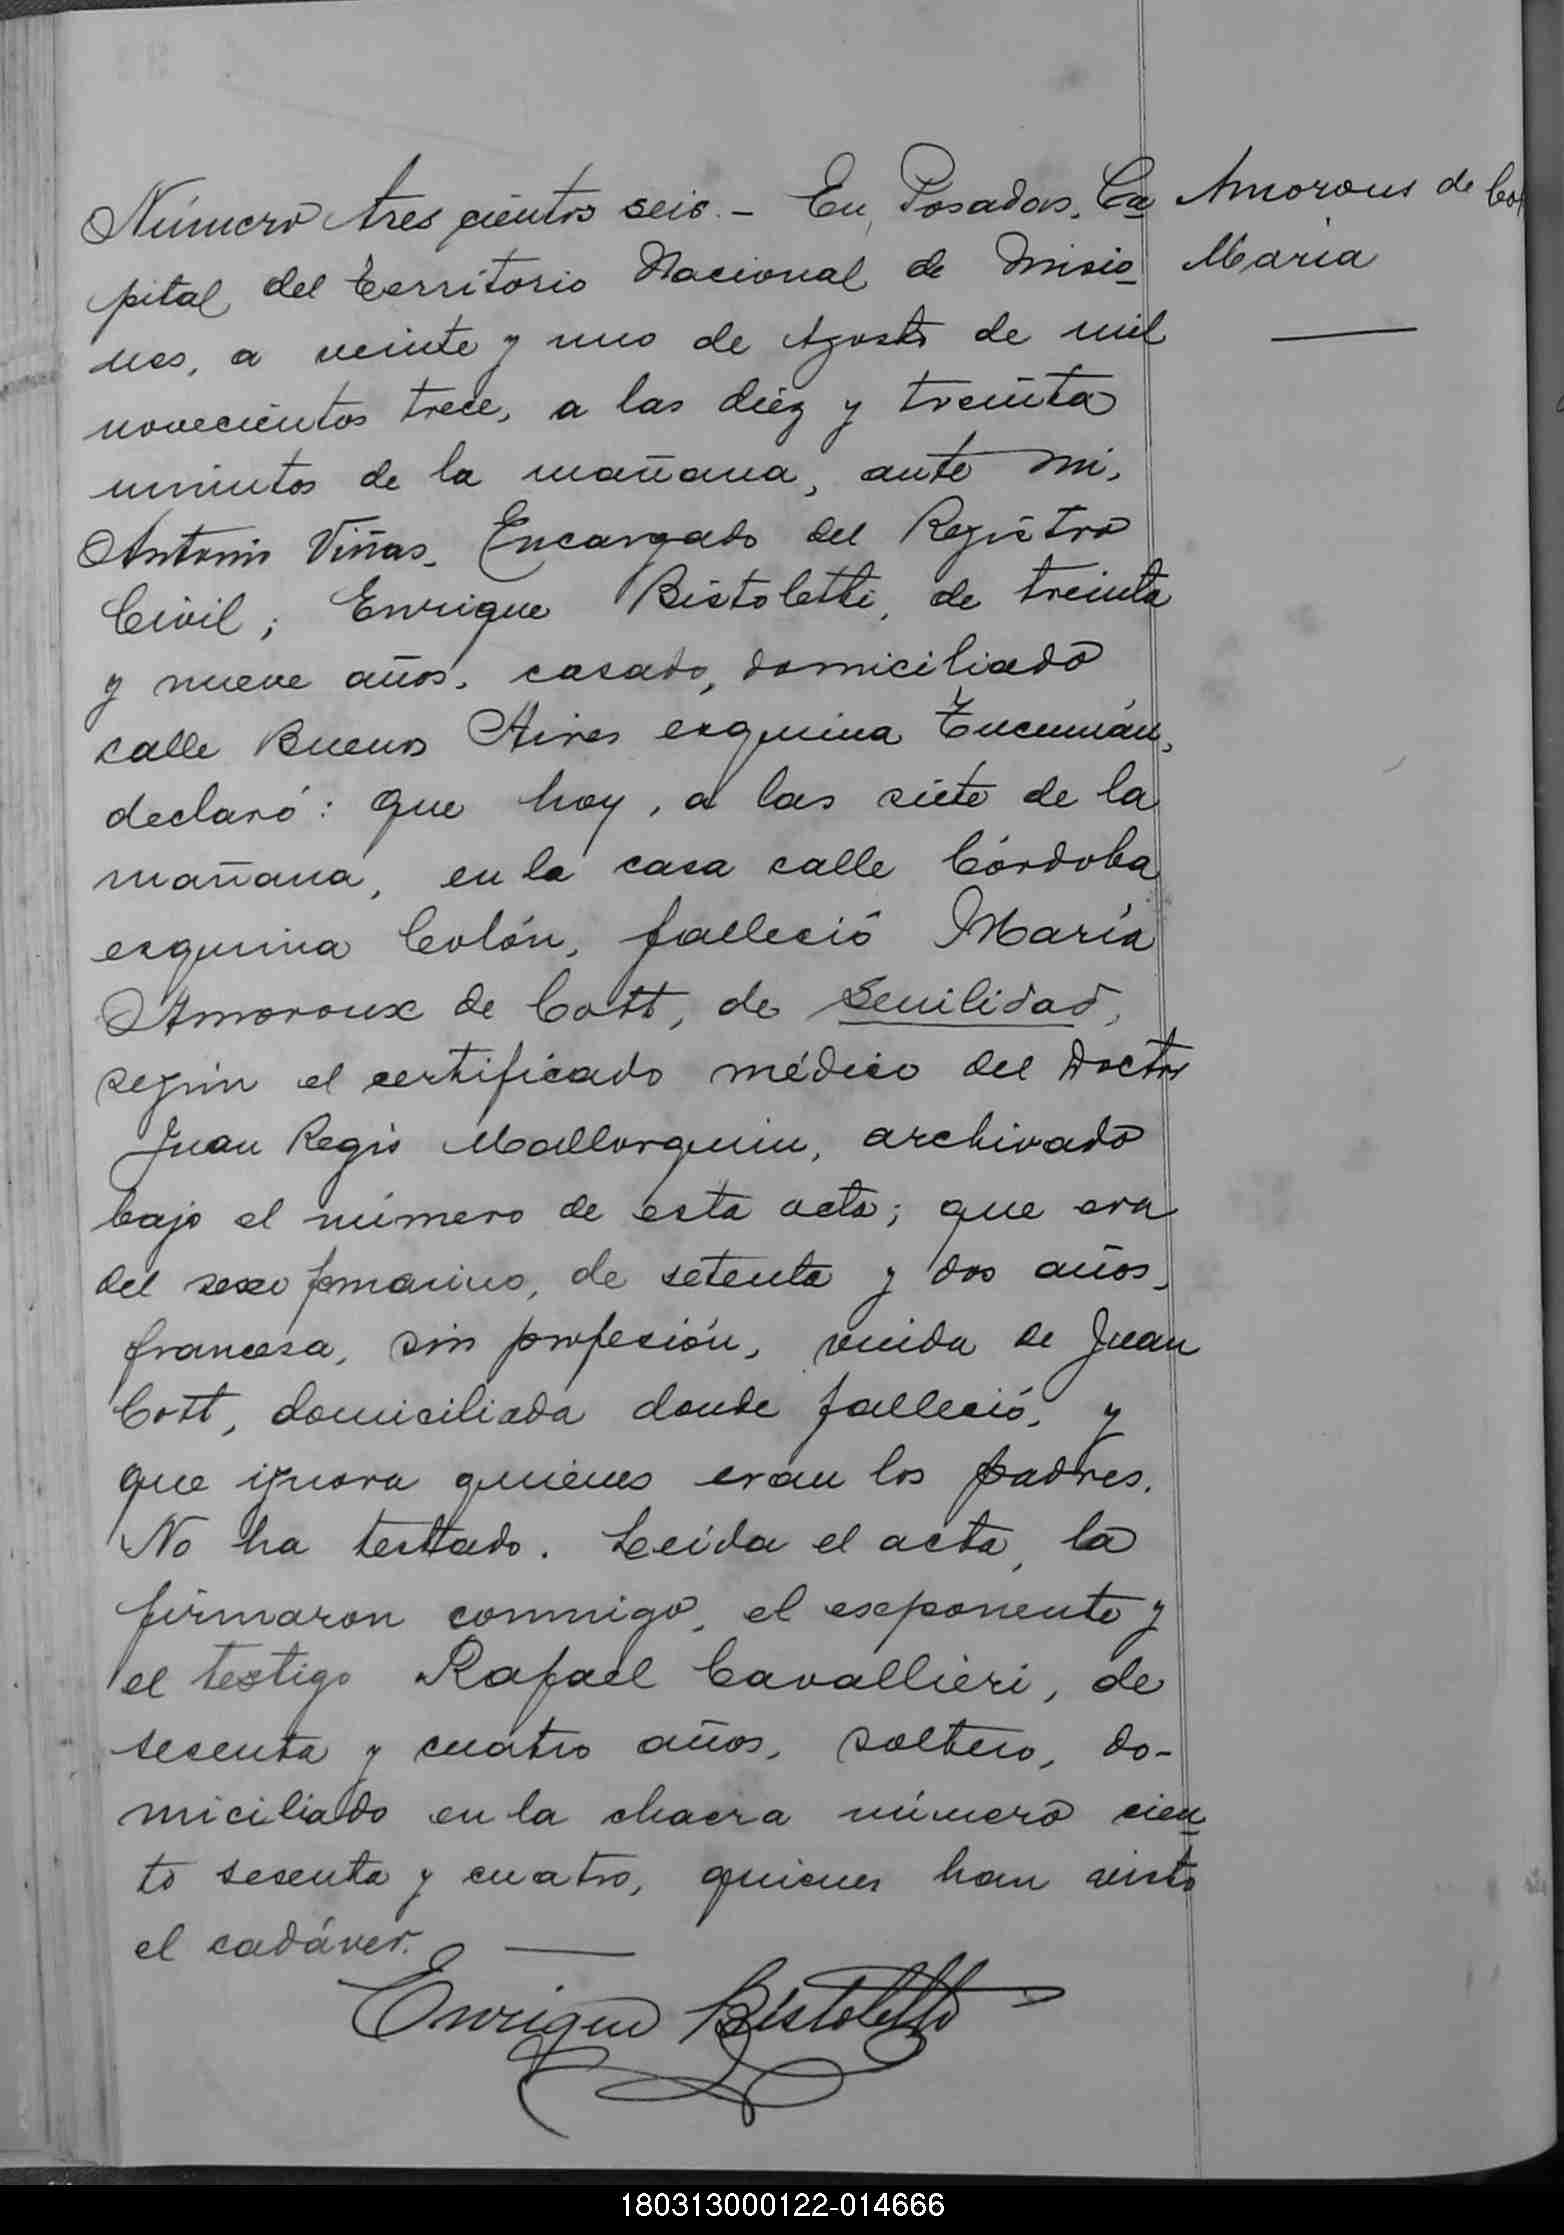 Número trescientos seis. - En Posadas, Ca
pital del Territorio Nacional de Misio
nes, a veinte y uno de Agosto de mil
novecientos trece, a las diez y treinta
minutos de la mañana, ante mi,
Antonio Viñas, Encargado del Registro
Civil; Enrique Bistoletti, de treinta
y nueve años, casado, domiciliado
calle Buenos Aires esquina Tucumán,
declaró: que hoy, a las siete de la
mañana, en la casa calle Córdoba
esquina Colón, falleció María
Amoroux de Cott, de Senilidad,
según el certificado médico del Doctor
Juan Regis Mallorquin, archivado
bajo el número de esta acta; que era
del sexo femenino, de setenta y dos años,
francesa, sin profesión, viuda de Juan
Cott, domiciliada donde falleció, y
que ignora quienes eran los padres.
No ha testado. Leida el acta, la
firmaron conmigo, el exponente y
el testigo Rafael Cavallieri, de
sesenta y cuatro años, soltero, do-
miciliado en la chacra número cien
to sesenta y cuatro, quienes han visto
el cadáver.
Enrique Bistoletti
Amorous de Cot
María
180313000122-014666